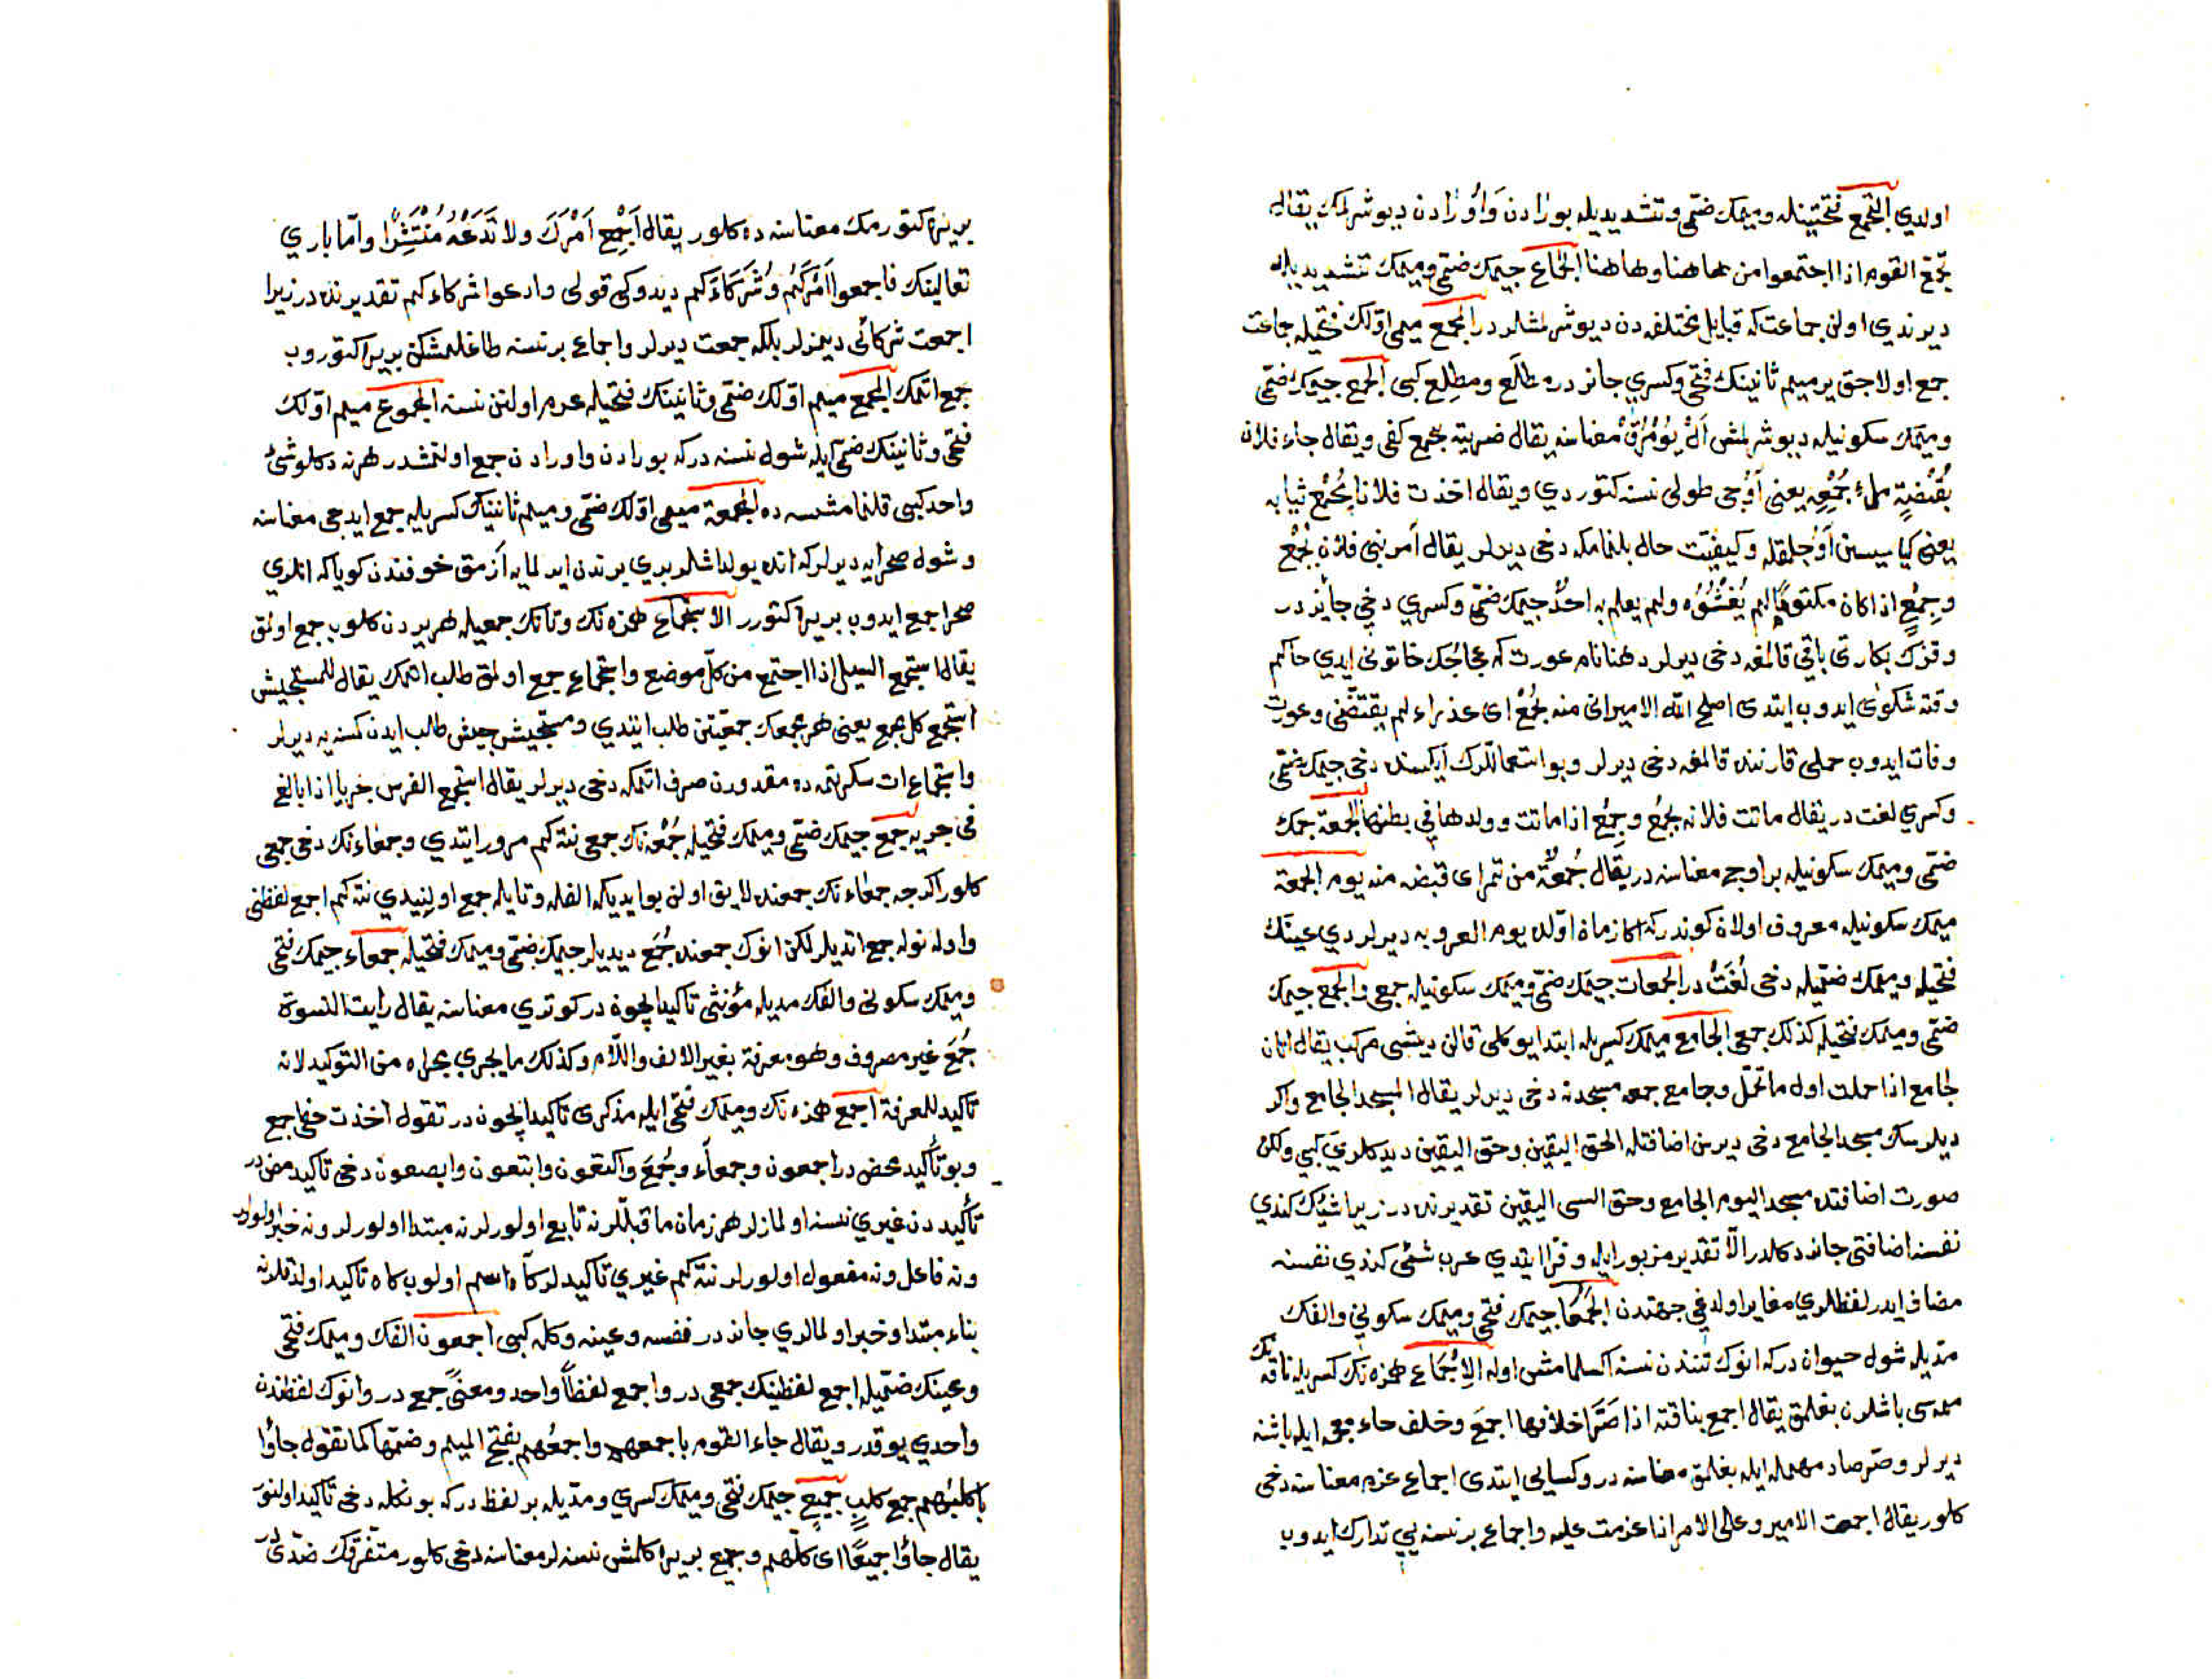 اولدي التجمع فتحتينله وميمك ضمّى وتشديديله بورادن وَاوُرادن ديوشرلمك يقال
تجمّع القوم اذا اجتمعوا من هاهنا وهاهنا الجُمّاع جيمك ضمّى وميمك تشديديله
ديرندى اولن جماعت كه قبايل مختلفه دن ديوشرلمشلر در المجمع ميمى اوّلك فتحيله جماعت
جمع اولاجق ير ميم ثانينك فتحى وكسرى جائزدر مطلَع ومطلِع كبى الجمع جيمك ضمّى
وميمك سكونيله ديوشرلمش ال يومرق معناسنه يقال ضربته بجمع كفى ويقال جاء فلان
بقُبضةٍ ملء جُمْعِه يعنى آوُجى طولى نسنه كتوردى ويقال اخذت فلانا بجُمْع ثيابه
يعنى كيا سيسن اوُجلمقله وكيفيّت حال بلنمامكه دخى ديرلر يقال امر بنى فلان بجُمْع
وجِمْعٍ اذا كان مكتوما لم يُفشُوُه ولم يعلم به احدٌ جيمك ضمّى وكسرى دخى جائزدر
وقزك بكارتى باقى قالمغه دخى ديرلر دهنا نام عورت كه عجاجك خاتونى ايدى حاكم
وقته شكوى ايدوب ايتدى اصلح الله الامير انى منه بجُمْع اى عذراء لم يقتضّنى وعورت
وفات ايدوب حملى قارننده قالمغه دخى ديرلر وبو استعماللرك ايكسنده دخى جيمك ضمّى
وكسرى لغت در يقال ماتت فلانه بجُمع وجِمْع اذا ماتت وولدها فى بطنها الجمعة جيمك
ضمّى وميمك سكونيله بر اوج معناسنه در يقال جُمْعَةٌ من تمر اى قبضه منه يوم الجمعة
ميمك سكونيله معروف اولان كوندر كه اكا زمان اوّلده يوم العروبه ديرلردى عينك
فتحيله وميمك ضمّيله دخى لُغَتْ در الجمعات جيمك ضمّى وميمك سكونيله جمعى والجمع جيمك
ضمّى وميمك فتحيله كذلك جمعى الجامع ميمك كسريله ابتدا يوكلى قالن ديشى مركب يقال اتان
جامع اذا حملت اول ما تحمل وجامع جمعه مسجدنه دخى ديرلر يقال المسجد الجامع واكر
ديلرسك مسجد الجامع دخى ديرسن اضافتله الحق اليقين وحق اليقين ديدكلرى كبى ولكن
صورت اضافتده مسجد اليوم الجامع وحق الشى اليقين تقديرنده در زيرا شيئك كندى
نفسنه اضافتى جائز دكلدر الّا تقدير مزبور ايله وفرّا ايتدى عرب شئى كندى نفسنه
مضاف ايدر لفظلرى مغاير اولدغى جهتدن الجَمْعا جيمك فتحى وميمك سكونى والفك
مدّيله شول حيوان در كه انوك تنندن نسنه اكسلمامش اوله الاِجْماع همزه نك كسريله ناقه نك
ممه سى باشلرن بغلمق يقال اجمع بناقته اذا صَرَّ اخلافها اجمعَ وخلف خاء معجمه ايله باشنه
ديرلر وصرّ صاد مهمله ايله بغلمق معناسنه در وكسايى ايتدى اجماع عزم معناسنه دخى
كلور يقال اجمعت الامر وعلى الامر اذا عزمت عليه واجماع بر نسنه يى تدارك ايدوب
بر يره كتورمك معناسنه ده كلور يقال اَجْمِع اَمْرَكَ ولا تَدَعْهُ مُنْتَشِرًا وامّا بارى
تعالينك فاجمعوا اَمْرَكُمْ وَشُرَكَاءَكم ديدوكى قولى وادعوا شركاءكم تقديرنده در زيرا
اجمعت شركائى ديمزلر بلكه جمعت ديرلر واجماع بر نسنه طاغلمشكن بر يره كتوروب
جمع اتمك المجمع ميم اوّلك ضمّى وثانينك فتحيله عزم اولنن نسنه المجموع ميم اوّلك
فتحى وثانينك ضمّى ايله شول نسنه در كه بورادن واورادن جمع اولنمشدر هر نه دكلو شئ
واحد كبى قلنمامشسه ده المجمعة ميمى اوّلك ضمّى وميم ثانينك كسريله جمع ايدجى معناسنه
وشول صحرايه ديرلر كه انده يولداشلر برى برندن ايرلمايه آزمق خوفندن كويا كه انلرى
صحرا جمع ايدوب بر يره كتورر الاستجماع همزه نك وتانك جمعيله هر يردن كلوب جمع اولمق
يقال استجمع السيل اذا اجتمع من كلّ موضع واستجماع جمع اولمق طالب اتمك يقال للمستجيش
استجمع كل مجمع يعنى هر مجمعك جمعيتن طلب ايتدى ومستجيش جيش طالب ايدن كمسنه يه ديرلر
واستجماع ات سكرتمه ده مقدورن صرف اتمكه دخى ديرلر يقال استجمع الفرس جريا اذا بالغ
فى جريه جمع جيمك ضمّى وميمك فتحيله جُمْعه نك جمعى نته كم مرور ايتدى وجمعاءنك دخى جمعى
كلور اكرجه جمعاءنك جمعنده لايق اولن بو ايدى كه الفله وتايله جمع اولنيدى نته كم اجمع لفظنى
واوله نونله جمع اتديلر لكن انوك جمعنده جُمَع ديديلر جيمك ضمّى وميمك فتحيله جمعاء جيمك فتحى
وميمك سكونى والفك مديله مؤنثى تاكيد ايچون در كوتدى معناسنه يقال رايت النسوة
جُمَعَ غير مصروف وهو معرفة بغير الالف واللّام وكذلك ما يجرى مجراه من التوكيد لانه
تاكيد للمعرفة اجمع همزه نك وميمك فتحى ايله مذكرى تاكيد ايچون در تقول اخذت حقى اجمع
وبو تأكيد محض در اجمعون وجمعاء وجُمَعَ واكتعون وابتعون وابصعون دخى تاكيد محض در
تأكيددن غيرى نسنه اولمازلر هر زمان ما قبللرنه تابع اولورلر نه مبتدا اولورلر ونه خبر اولورلر
ونه فاعل ونه مفعول اولورلر نته كم غيرى تاكيدلر كاه اسم اولوب كاه تاكيد اولدقلرنه
بناء مبتدا وخبر اولمالرى جائزدر نفسه وعينه وكله كبى اجمعون الفك وميمك فتحى
وعينك ضمّيله اجمع لفظينك جمعى در واجمع لفظاً واحد ومعنىً جمع در وانوك لفظندن
واحدى يوقدر ويقال جاء القوم باجمعهم واجمُعُهم بفتح الميم وضمّها كما تقول جاؤا
باكلبُهم جمع كلبٍ جميع جيمك فتحى وميمك كسرى ومدّيله بر لفظ در كه بونكله دخى تأكيد اولنور
يقال جاؤا جميعًا اى كلّهم وجميع بر يره كلمش نسنه لر معناسنه دخى كلور متفرقك ضدّى در